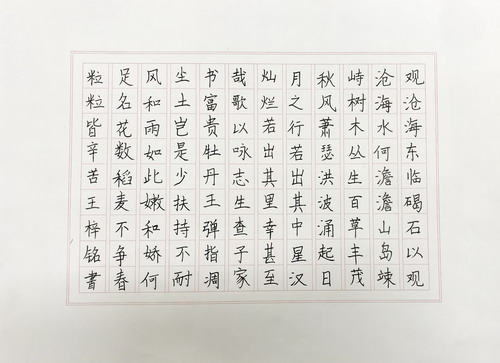 观沧海东临碣石以观
沧海水何澹澹山岛竦
峙树木丛生百草丰茂
秋风萧瑟洪波涌起日
月之行若出其中星汉
灿烂若出其里幸甚至
哉歌以咏志生查子家
书富贵牡丹王弹指凋
尘土岂是少扶持不耐
风和雨如此嫩和娇何
足名花数稻麦不争春
粒粒皆辛苦王梓铭書